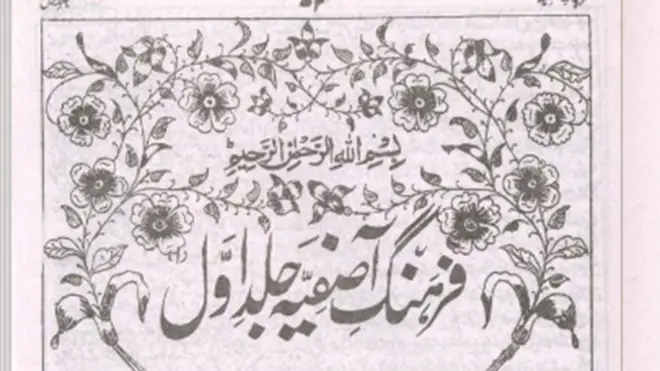 بِسْمِ اللهِ الرَّحْمٰنِ الرَّحِيْمِ
فرہنگِ آصفیّہ جلد اوّل